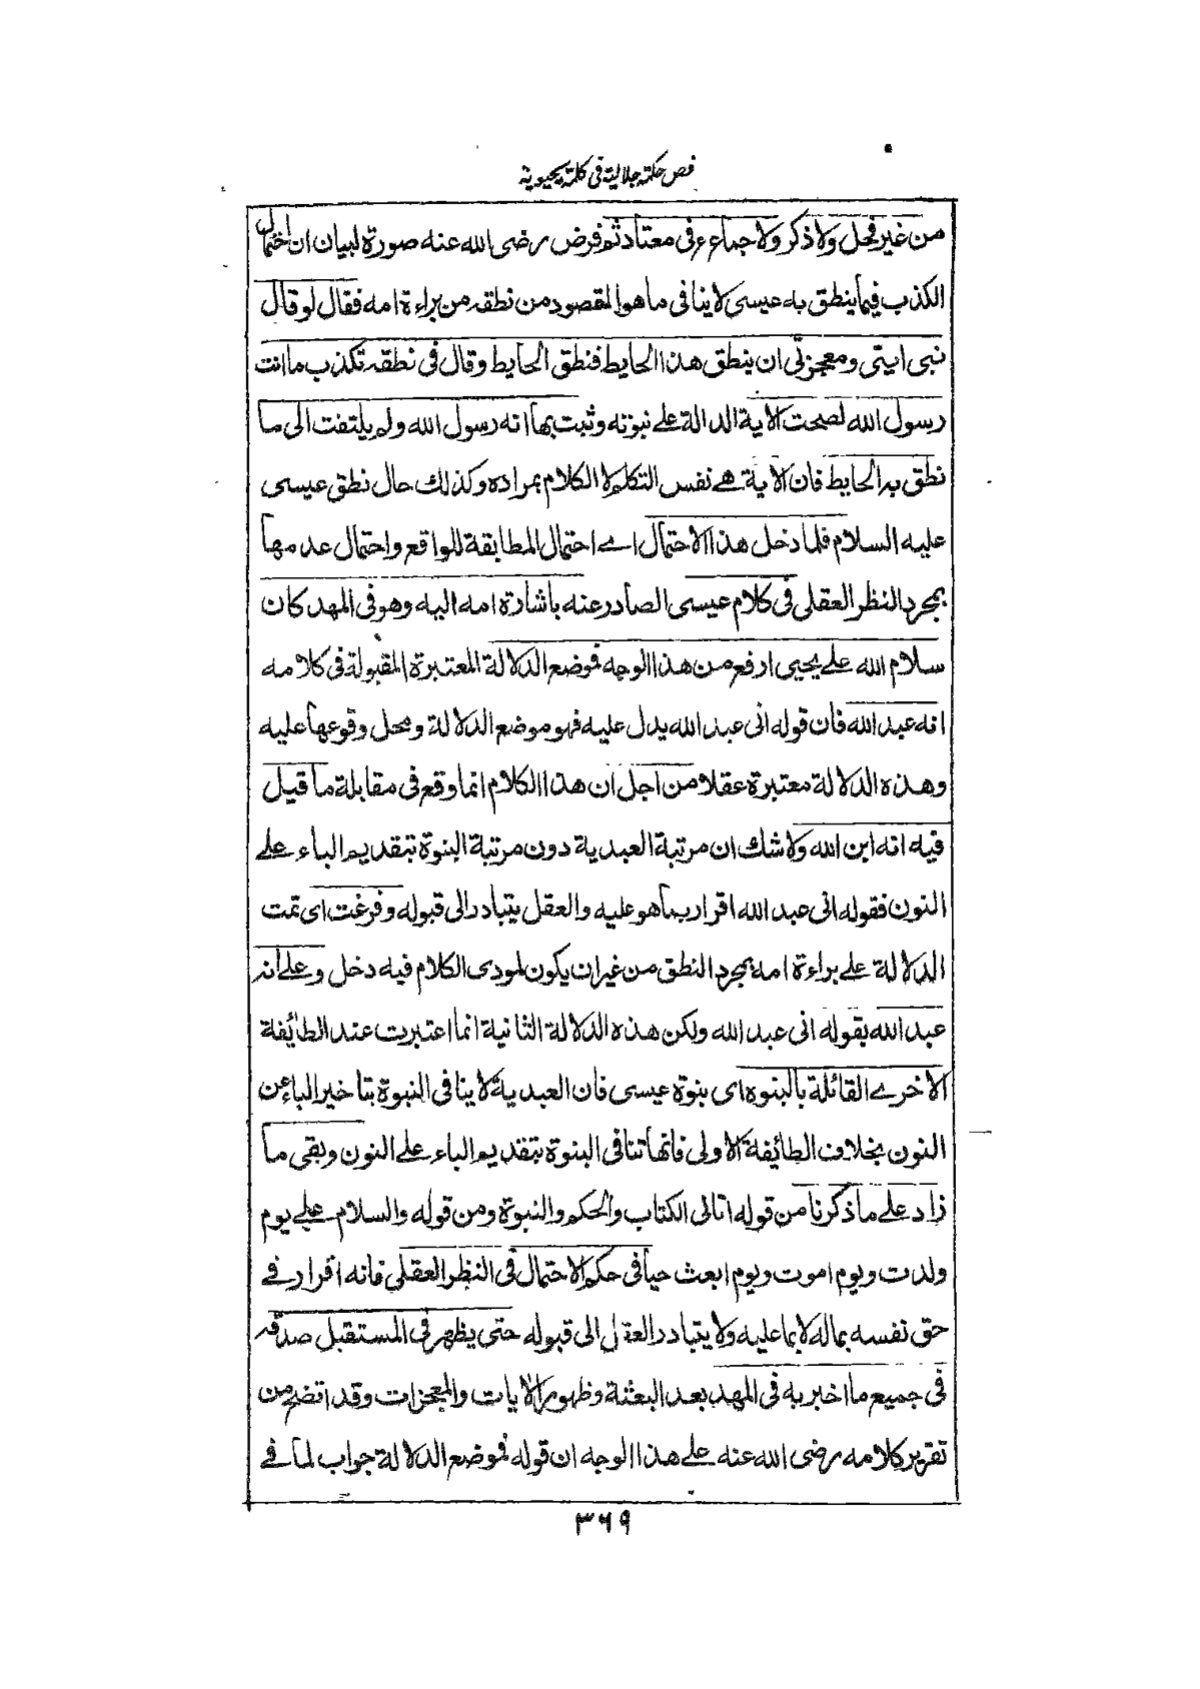 فص حكمة جلالية في كلمة يحيوية
من غير فحل ولا ذكر ولا جماع عرفى معتاد ثم فرض رضى الله عنه صورة لبيان ان احتمال
الكذب فيما ينطق به عيسى لا ينافى ما هو المقصود من نطقه من براءة امه فقال لو قال
نبى ايتى ومعجزتى ان ينطق هذا الحايط فنطق الحايط وقال فى نطقه تكذب ما انت
رسول الله لصحت الاية الدالة على نبوته وثبت بها انه رسول الله ولم يلتفت الى ما
نطق به الحايط فان الاية هى نفس التكلم لا الكلام بمراده وكذلك حال نطق عيسى
عليه السلام فلما دخل هذا الاحتمال اى احتمال المطابقة للواقع واحتمال عدمها
بمجرد النظر العقلى فى كلام عيسى الصادر عنه باشارة امه اليه وهو فى المهد كان
سلام الله على يحيى ارفع من هذا الوجه فموضع الدلالة المعتبرة المقبولة فى كلامه
انه عبد الله فان قوله انى عبد الله يدل عليه فهو موضع الدلالة ومحل وقوعها عليه
وهذه الدلالة معتبرة عقلا من اجل ان هذا الكلام انما وقع فى مقابلة ما قيل
فيه انه ابن الله ولا شك ان مرتبة العبدية دون مرتبة البنوة بتقديم الباء على
النون فقوله انى عبد الله اقرار بما هو عليه والعقل يتبادر الى قبوله وفرغت اى تمت
الدلالة على براءة امه بمجرد النطق من غير ان يكون لمودى الكلام فيه دخل وعلى انه
عبد الله بقوله انى عبد الله ولكن هذه الدلالة الثانية انما اعتبرت عند الطائفة
الاخرى القائلة بالبنوه اى بنوة عيسى فان العبدية لا ينافى النبوة بتاخير الباء عن
النون بخلاف الطائفة الاولى فانها تنافى البنوة بتقديم الباء على النون وبقى ما
زاد على ما ذكرنا من قوله اتانى الكتاب والحكم والنبوة ومن قوله والسلام على يوم
ولدت ويوم اموت ويوم ابعث حيا فى حكم الاحتمال فى النظر العقلى فانه اقرار فى
حق نفسه بماله لا بما عليه ولا يتبادر العقل الى قبوله حتى يظهر فى المستقبل صدقه
فى جميع ما اخبر به فى المهد بعد البعثة وظهور الايات والمعجزات وقد اتضح من
تقرير كلامه رضى الله عنه على هذا الوجه ان قوله فموضع الدلالة جواب لما فى
٣٦٩